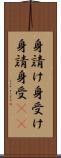 身請け身受け
身請身受((